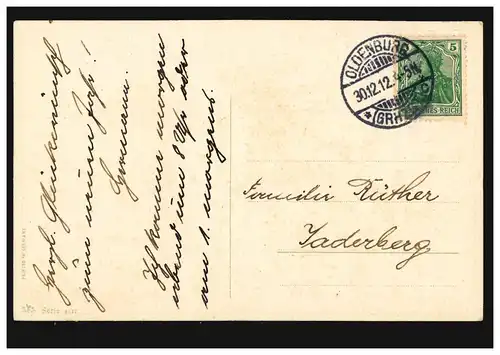 Herzl. Glückwunsch
zum neuen Jahr!
Hermann.
Ich komme morgen
abend um 8 Uhr oder
am 1. morgens.
OLDENBURG
30.12.12.
*(GRHZ
5
HES REICH
Familie Rüther
Jaderberg